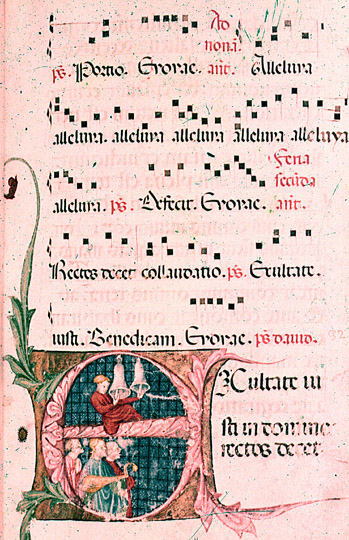 Ad
nonā.
ps. Portio. Evovae. añt. Alleluya
alleluya. alleluya alleluya alleluya alleluya
Feria
secūda
alleluya. ps. Defecit. Evovae. añt.
Rectos decet collaudatio. ps. Exultate.
iusti. Benedicam. Evovae. ps david.
EXultate iu
sti in domino
rectos decet